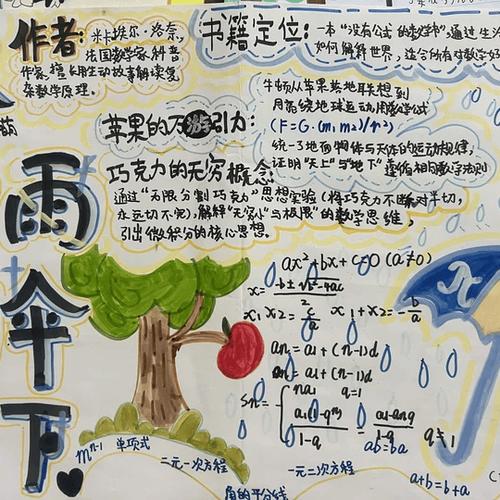 作者:
米卡埃尔·洛奈,
法国数学家,科普
作家,擅长用生动故事解读复
杂数学原理。
书籍定位:
一本“没有公式的数学书”,通过生活
如何解释世界,适合所有对数学好
苹果的万 引力:
牛顿从苹果落地联想到
月亮绕地球运动,用数学公式
(F=G·(m₁m₂)/r²)
统一了地面物体与天体的运动规律,
证明“天上”与“地下”遵循相同数学法则
巧克力的无穷概念:
通过“无限分割巧克力”思想实验(将巧克力不断对半切,
永远切不完),解释“无穷小”与“极限”的数学思维,
引出微积分的核心思想。
雨伞下
ax²+bx+c=0(a≠0)
x₁x₂=c/a x₁+x₂=-b/a
an=a1+(n-1)d
an=a1+(n-1)d
na1 q=1
1-q
ab=ba
a+b=b+a
单项式
二元一次方程
一元二次方程
角的平分线